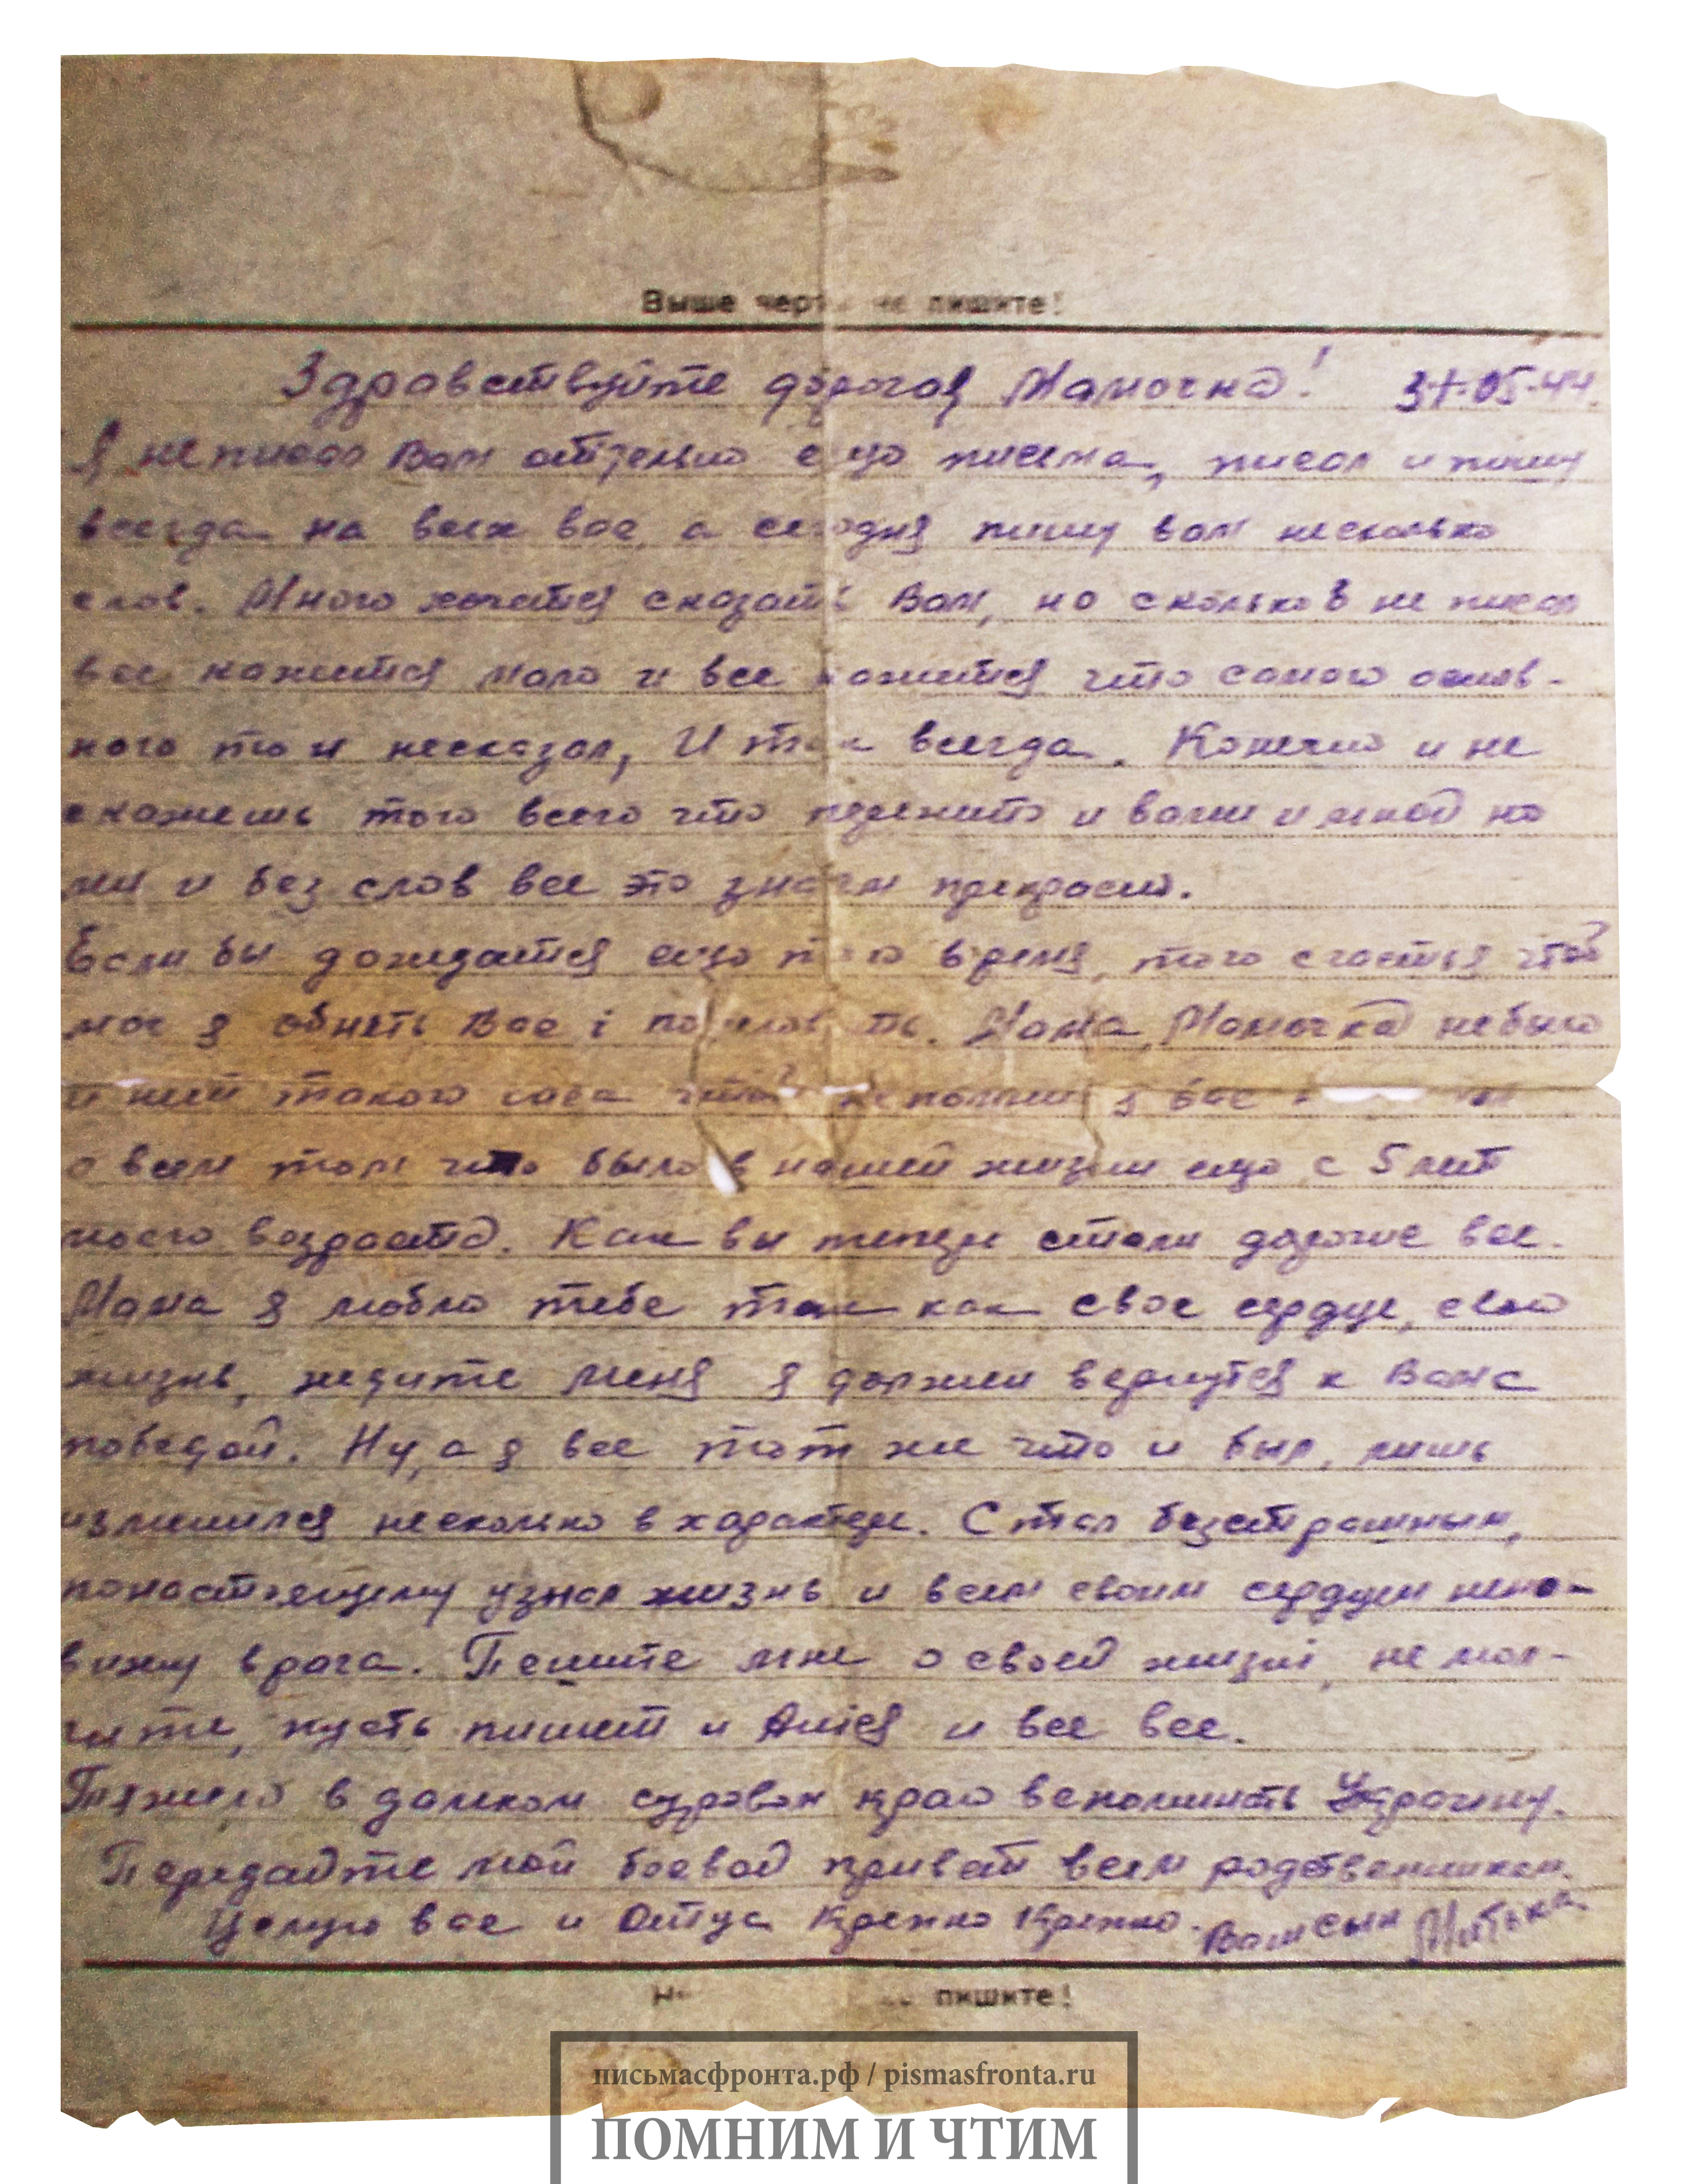 Выше черты не пишите!
Здравствуйте дорогая Мамочка! 31.05.44
Я не писал Вам отдельно ещо писема, писал и пишу
всегда на всех вас, а сегодня пишу вам несколько
слов. Много хочится сказать Вам, но скольков не писал
все кажится мало и все кажится что самого основ-
ного то и несказал, И так всегда. Конечно и не
скажешь того всего что пережито и вами и мной но
ми и без слов все это знаем прекрасно.
Если бы дождатся ещо того время, того счастья чтоб
мог я обнять Вас і поцеловать. Мама, Мамочка небыло
и нет такого часа чтоб не помнил я вас
о всем том что было в нашей жизни ещо с 5 лет
моего возраста. Как вы теперь стали дорогие все.
Мама я люблю тебе так как свое сердце, свою
жизнь, ждите меня я должен вернутся к Вам с
победой. Ну, а я все тот же что и был, лишь
изминился несколько в характере. Стал безстрашным,
понастоящему узнал жизнь и всем своим сердцем нена-
вижу врага. Пешите мне о своей жизні, не мол-
чите, пусть пишет и и все все.
Тяжело в далеком суровом краю вспоминать Украину.
Передайте мой боевой привет всем родственникам.
Целую вас и Отца Крепко Крепко. Ваш сын Митька
пишите!
письмасфронта.рф / pismasfronta.ru
ПОМНИМ И ЧТИМ